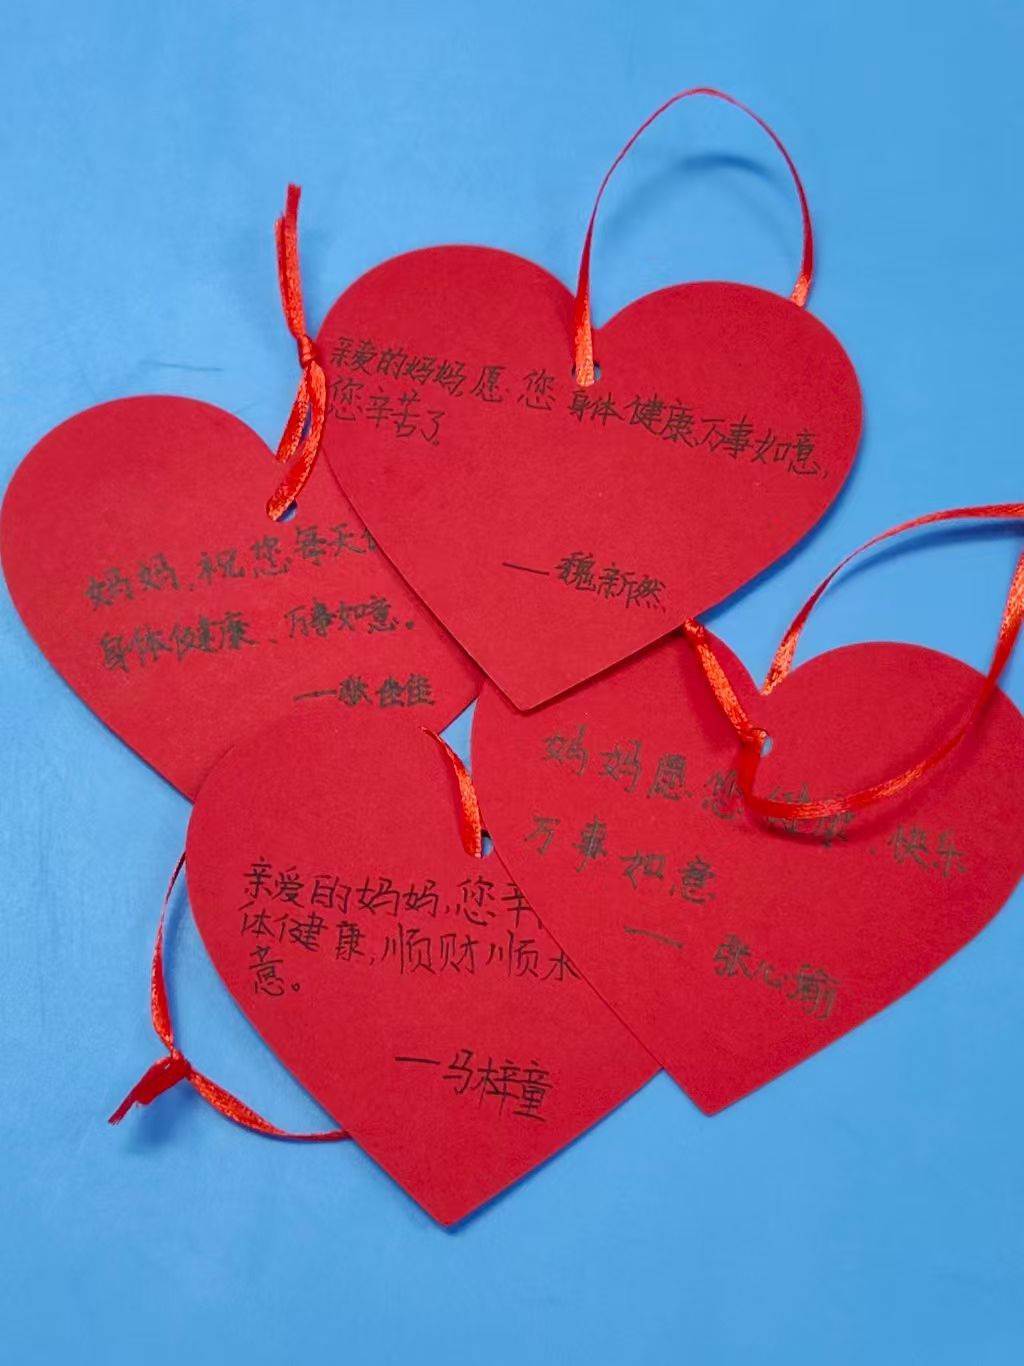 亲爱的妈妈,愿您身体健康,万事如意,
您辛苦了。
—魏新然
妈妈,祝您每天
身体健康、万事如意。
—耿佳佳
妈妈愿您健康、快乐
万事如意
— 张心瑜
亲爱的妈妈,您辛
体健康,顺财顺水
意。
—马梓童